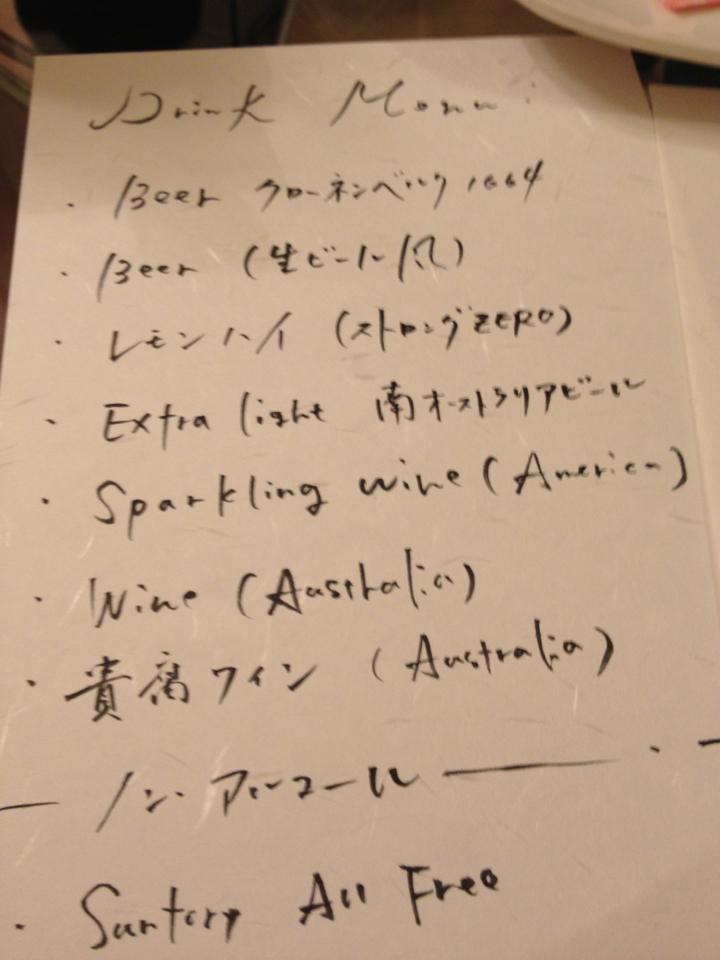 Drink Menu
・Beer クローネンベルク 1664
・Beer (生ビール風)
・レモンハイ (ストロングZERO)
・Extra light 南オーストラリアビール
・Sparkling wine (America)
・Wine (Australia)
・貴腐ワイン (Australia)
— ノン・アルコール —
・Suntory All Free